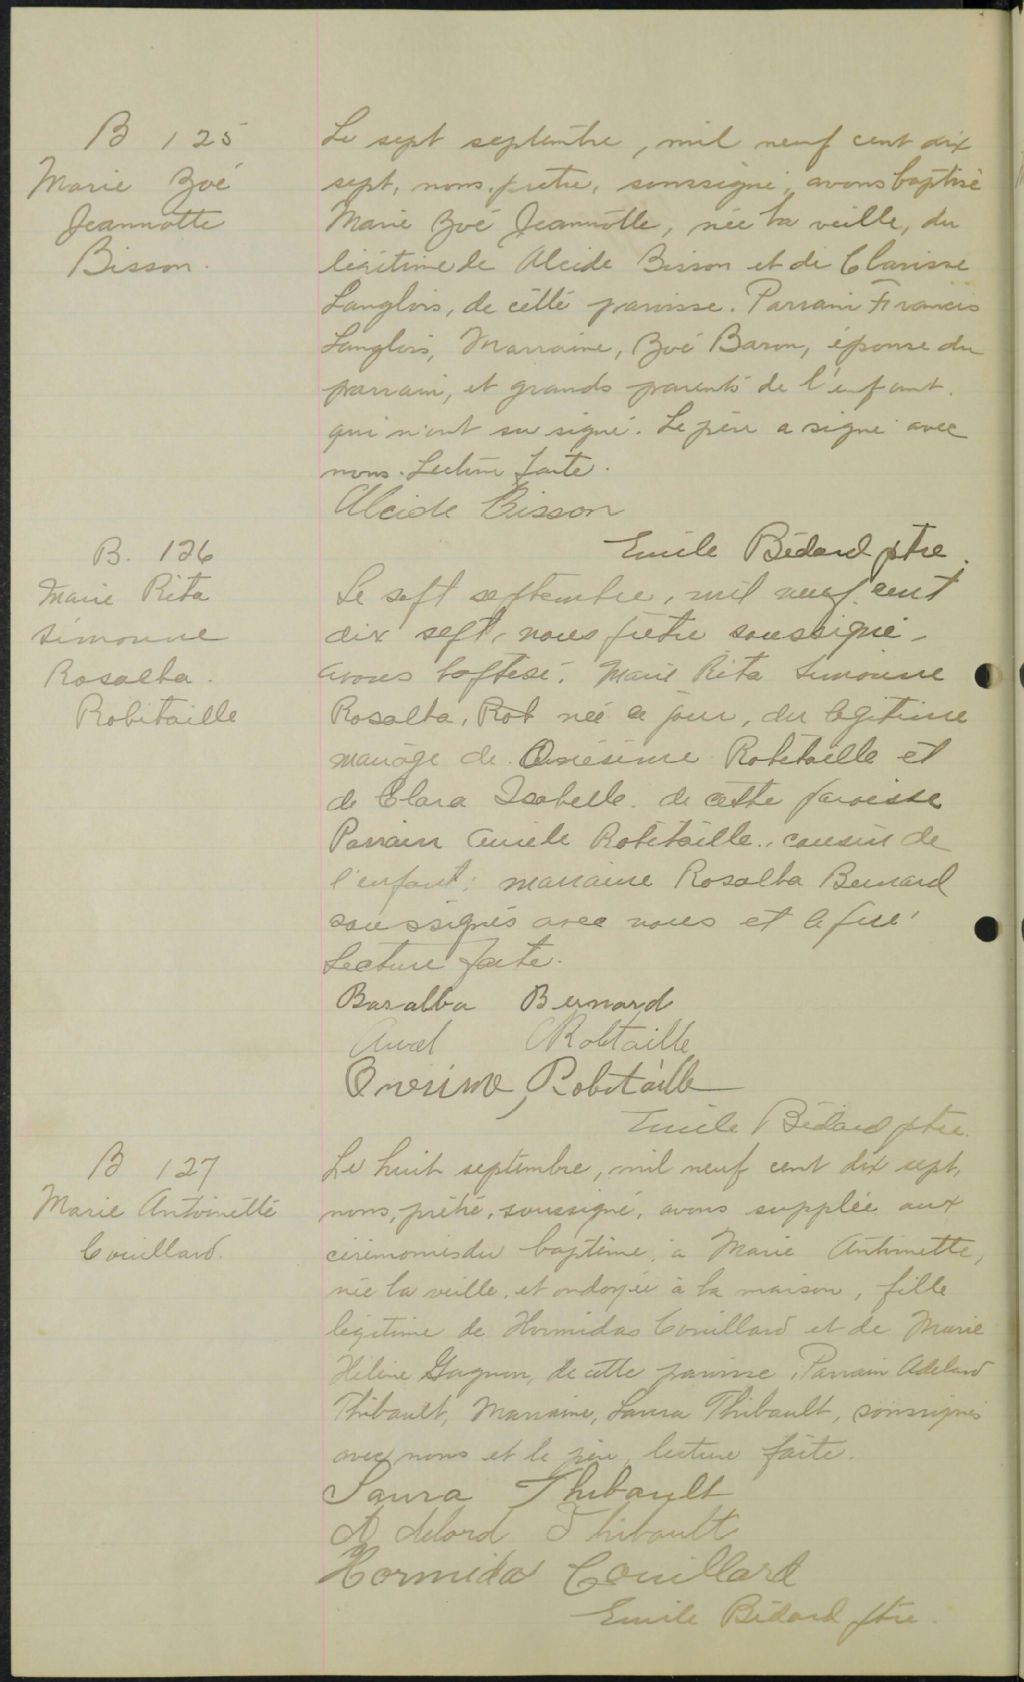 B 125
Marie Zoé
Jeannotte
Bisson.
Le sept septembre, mil neuf cent dix
sept, nous, prêtre, soussigné, avons baptisé
Marie Zoé Jeannotte, née la veille, du
légitime de Alcide Bisson et de Clarisse
Langlois, de cette paroisse. Parrain Francis
Langlois, Marraine, Zoé Baron, épouse du
parrain, et grands parents de l'enfant.
qui n'ont su signé. Le père a signé avec
nous. Lecture faite.
Alcide Bisson
Emile Bédard ptre.
B. 126
Marie Rita
Simonne
Rosalba.
Robitaille
Le sept septembre, mil neuf cent
dix sept, nous prêtre soussigné
avons baptisé. Marie Rita Simonne
Rosalba, Rob née ce jour, du légitime
mariage de Onésime Robitaille et
de Clara Isabelle. de cette paroisse
Parrain Robitaille, cousin de
l'enfant; marraine Rosalba Bernard
soussignés avec nous et le père
Lecture faite.
Bernard
Robitaille
Onesime Robitaille
Emile Bédard ptre.
B 127
Marie Antoinette
Couillard.
Le huit septembre, mil neuf cent dix sept,
nous, prêtre, soussigné, avons supplée aux
cérémonies du baptême, à Marie Antoinette,
née la veille, et ondoyée à la maison, fille
légitime de Hormidas Couillard et de Marie
Hélène Gagnon, de cette paroisse. Parrain Adelard
Thibault, Marraine, Laura Thibault, soussignés
avec nous et le père, lecture faite.
Laura Thibault
Adelard Thibault
Hormidas Couillard
Emile Bédard ptre.